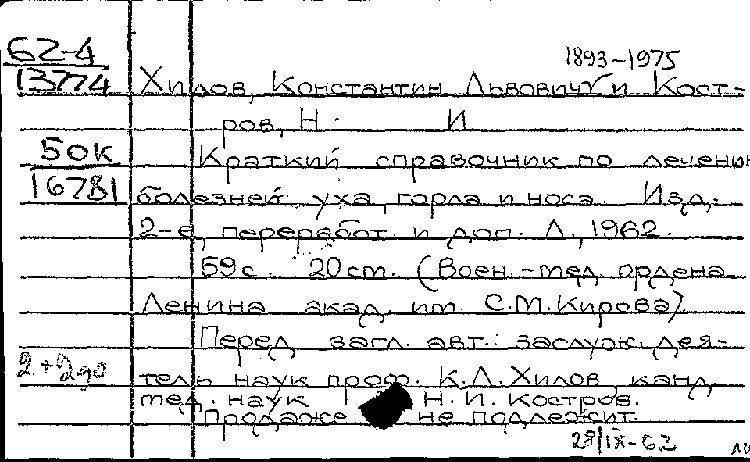 1893-1975
62-4
13774
Хилов, Константин Львович и Кост-
ров, Н. И
50к
16781
Краткий справочник по лечению
болезней уха, горла и носа. Изд.
2-е, переработ. и доп. Л., 1962.
59с. 20см. (Воен.-мед. ордена
Ленина акад. им С.М.Кирова)
Перед загл. авт.: заслуж. дея-
тель наук проф. К.Л.Хилов, канд.
мед. наук Н.И.Костров.
Продаже не подлежит.
28/IX-62